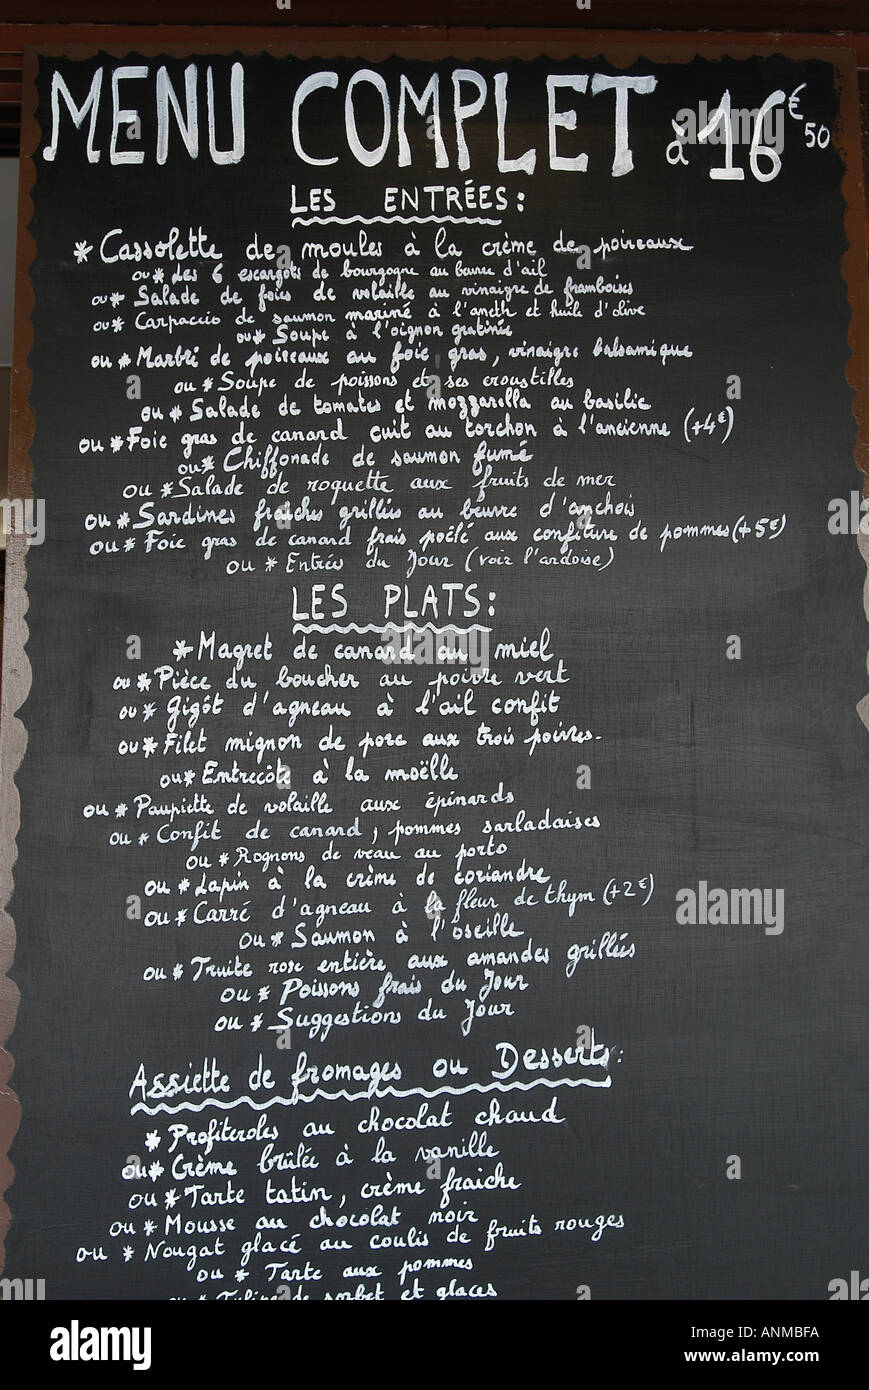 MENU COMPLET à 16€50
LES ENTRÉES:
* Cassolette de moules à la crème de poireaux
ou * Les 6 escargots de bourgogne au beurre d'ail
ou * Salade de foies de volaille au vinaigre de framboises
ou * Carpaccio de saumon mariné à l'aneth et huile d'olive
ou * Soupe à l'oignon gratinée
ou * Marbré de poireaux au foie gras, vinaigre balsamique
ou * Soupe de poissons et ses croustilles
ou * Salade de tomates et mozzarella au basilic
ou * Foie gras de canard cuit au torchon à l'ancienne (+4€)
ou * Chiffonade de saumon fumé
ou * Salade de roquette aux fruits de mer
ou * Sardines fraîches grillées au beurre d'anchois
ou * Foie gras de canard frais poêlé aux confiture de pommes (+5€)
ou * Entrées du Jour (voir l'ardoise)
LES PLATS:
* Magret de canard au miel
ou * Pièce du boucher au poivre vert
ou * Gigôt d'agneau à l'ail confit
ou * Filet mignon de porc aux trois poivres.
ou * Entrecôte à la moëlle
ou * Paupiette de volaille aux épinards
ou * Confit de canard, pommes sarladaises
ou * Rognons de veau au porto
ou * Lapin à la crème de coriandre
ou * Carré d'agneau à la fleur de thym (+2€)
ou * Saumon à l'oseille
ou * Truite rose entière aux amandes grillées
ou * Poissons frais du Jour
ou * Suggestions du Jour
Assiette de fromages ou Desserts:
* Profiteroles au chocolat chaud
ou * Crème brûlée à la vanille
ou * Tarte tatin, crème fraiche
ou * Mousse au chocolat noir
ou * Nougat glacé au coulis de fruits rouges
ou * Tarte aux pommes
ou * Tulipe de sorbet et glaces
alamy
Image ID: ANMBFA
www.alamy.com